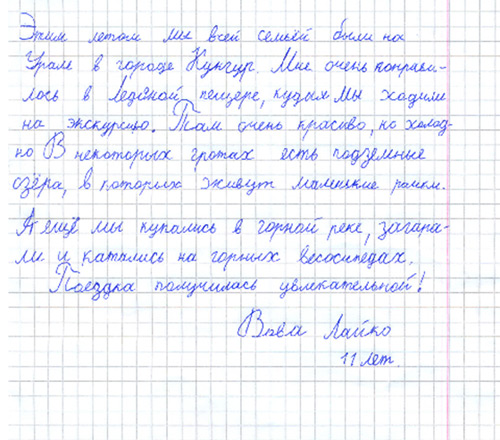 Этим летом мы всей семьёй были на
Урале в городе Кунгур. Мне очень понрави-
лось в Ледяной пещере, куда мы ходили
на экскурсию. Там очень красиво, но холод-
но В некоторых гротах есть подземные
озёра, в которых живут маленькие рачки.
А ещё мы купались в горной реке, загара-
ли и катались на горных велосипедах.
Поездка получилась увлекательной!
Вова Лайко
11 лет.